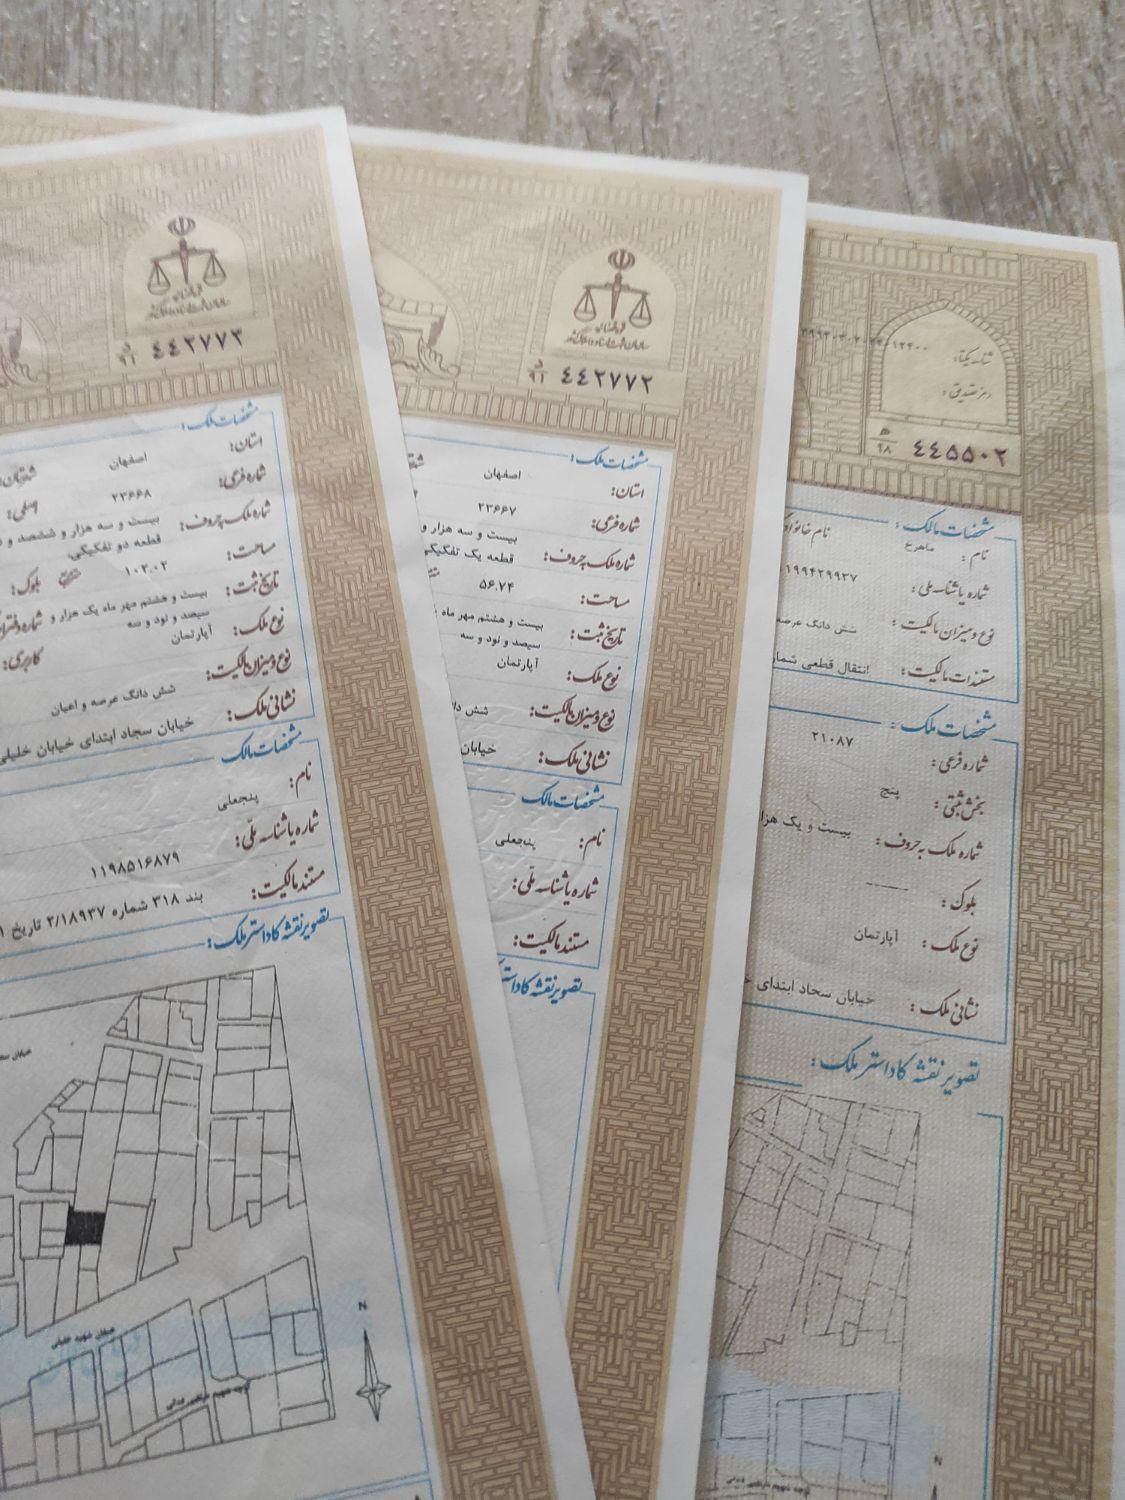 قوه قضائیه
سازمان ثبت اسناد و املاک کشور
۴۴۲۷۷۳
د
۹۱
مشخصات ملک:
استان:
اصفهان
شماره فرعی:
۲۳۶۶۸
اصلی:
شماره ملک بحروف:
بیست و سه هزار و ششصد و
قطعه دو تفکیکی
مساحت:
۱۰۲.۰۲
بلوک:
تاریخ ثبت:
بیست و هشتم مهر ماه یک هزار و
سیصد و نود و سه
نوع ملک:
آپارتمان
کاربری:
نوع و میزان مالکیت:
شش دانگ عرصه و اعیان
نشانی ملک:
خیابان سجاد ابتدای خیابان خلیلی
مشخصات مالک
نام:
پنجعلی
شماره یا شناسه ملّی:
۱۱۹۸۵۱۶۸۷۹
مستند مالکیت:
بند ۳۱۸ شماره ۲/۱۸۹۳۷ تاریخ ۱
تصویر نقشه کاداستر ملک:
N
قوه قضائیه
سازمان ثبت اسناد و املاک کشور
۴۴۲۷۷۲
د
۹۱
مشخصات ملک:
استان:
اصفهان
شماره فرعی:
۲۳۶۶۷
شماره ملک بحروف:
بیست و سه هزار و
قطعه یک تفکیکی
مساحت:
۵۶.۷۴
تاریخ ثبت:
بیست و هشتم مهر ماه
سیصد و نود و سه
نوع ملک:
آپارتمان
نوع و میزان مالکیت:
شش
نشانی ملک:
خیابان
مشخصات مالک
نام:
پنجعلی
شماره یا شناسه ملّی:
مستند مالکیت:
تصویر نقشه
شناسه یکتا:
رمز تصدیق:
۴۴۵۵۰۲
ه
۹۸
مشخصات مالک :
نام :
ماهرخ
شماره یا شناسه ملی :
۱۹۹۴۲۹۹۳۷
نوع و میزان مالکیت :
شش دانگ عرصه
مستندات مالکیت :
انتقال قطعی
مشخصات ملک :
شماره فرعی :
۲۱۰۸۷
بخش ثبتی :
پنج
شماره ملک بحروف :
بیست و یک هزار
بلوک :
------
نوع ملک :
آپارتمان
نشانی ملک :
خیابان سجاد ابتدای
تصویر نقشه کاداستر ملک :
N